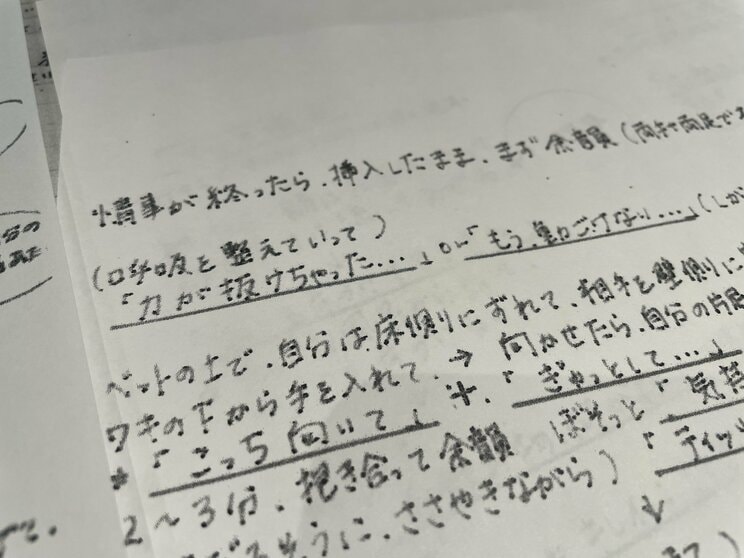 情事が終ったら、挿入したまま、まず余韻(両手両足で
(呼吸を整えていって)
「力が抜けちゃった…」or「もう動ごけない…」(しが
ベットの上で、自分は床側にずれて、相手を壁側に
ワキの下から手を入れて、→ 向かせたら、自分の片足
*「こっち向いて」+「ぎゅっとして…」
2〜3分、抱き合って余韻 ぼそっと「気持
そうに、ささやきながら)「ティッ
↓